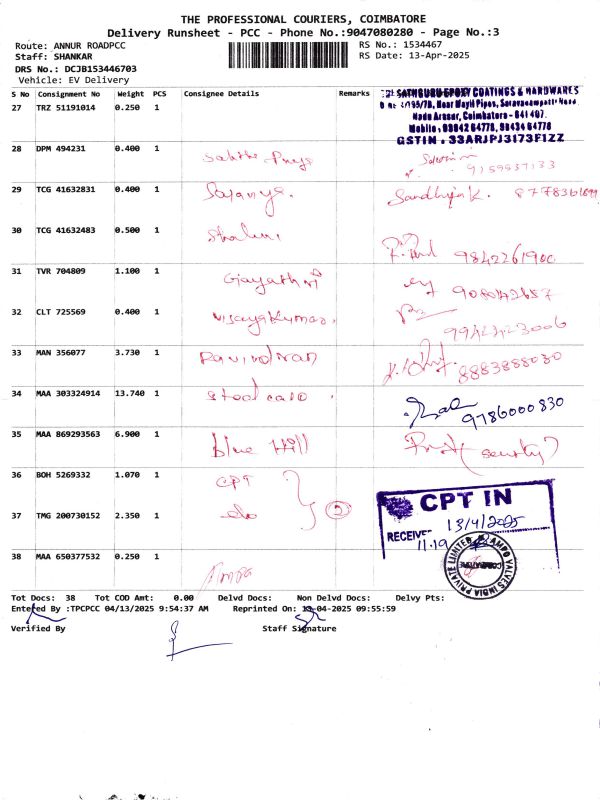 THE PROFESSIONAL COURIERS, COIMBATORE
Delivery Runsheet - PCC - Phone No.:9047080280 - Page No.:3
Route: ANNUR ROADPCC
RS No.: 1534467
Staff: SHANKAR
RS Date: 13-Apr-2025
DRS No.: DCJB153446703
Vehicle: EV Delivery
S No Consignment No Weight PCS Consignee Details Remarks
27 TRZ 51191014 0.250 1
SATHGURU EPOXY COATINGS & HARDWARES
Mobile : 98842 64778, 98436 64778
GSTIN : 33ARJPJ3173F1ZZ
28 DPM 494231 0.400 1
29 TCG 41632831 0.400 1 Saranya. Sandhiya K.
30 TCG 41632483 0.500 1 Shalini 9842261900
31 TVR 704809 1.100 1 Gayathri
32 CLT 725569 0.400 1 Vijayakumar.
33 MAN 356077 3.730 1 Ravindran 8883888030
34 MAA 303324914 13.740 1 Steel case 9786000830
35 MAA 869293563 6.900 1 blue Hill
36 BOH 5269332 1.070 1 CPT
37 TMG 200730152 2.350 1 do 2
CPT IN
13/4/2025
RECEIVED
11.19
AMPO VALVES INDIA PRIVATE LIMITED
COIMBATORE
38 MAA 650377532 0.250 1 Ampo
Tot Docs: 38 Tot COD Amt: 0.00 Delvd Docs: Non Delvd Docs: Delvy Pts:
Entered By :TPCPCC 04/13/2025 9:54:37 AM Reprinted On: 13-04-2025 09:55:59
Verified By Staff Signature